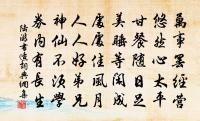 萬事罷經營
悠然心太平
甘餐隨日足
美睡等閑成
處處佳風月
人人好弟兄
神仙不須學
券內有長生
陸游書懷詞典網集